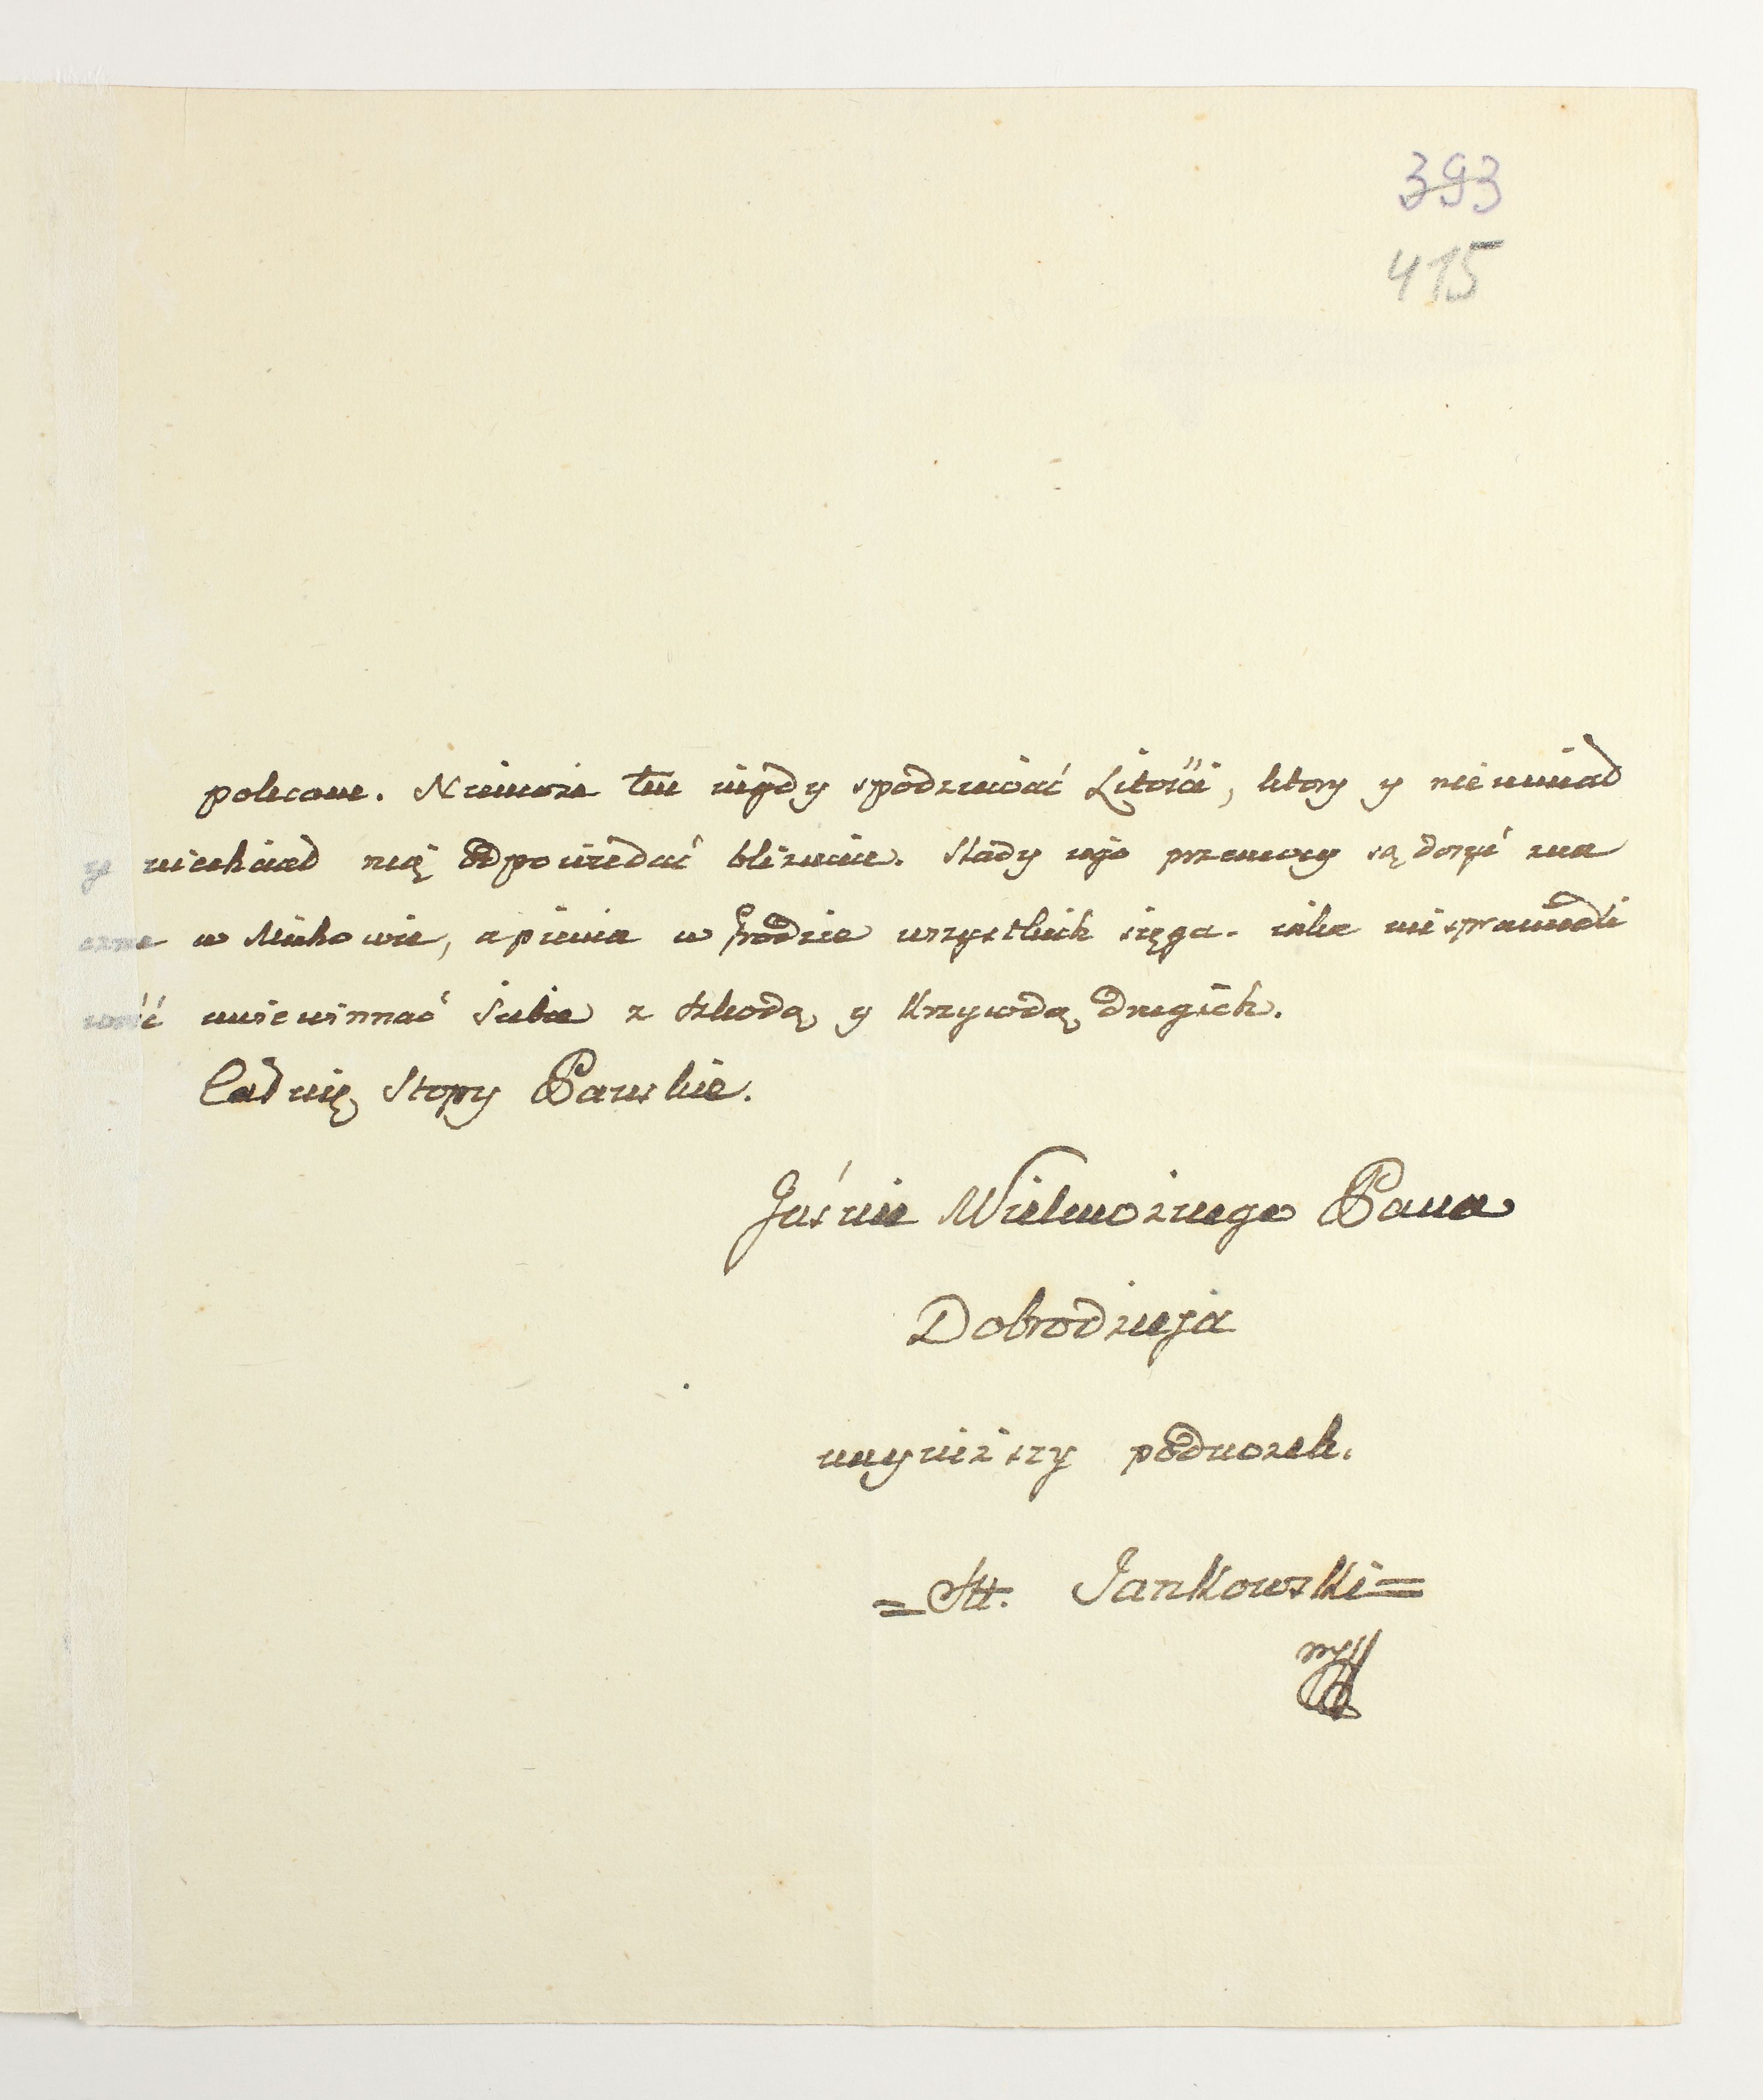 393
415
polecone. Niemoże ten nigdy spodziewać Litości, ktory y nieumiał
y niechciał nią odpowiedać bliznim. Ślady iego przemocy są dosyć zna
czne w Miechowie, a pienia w Grodzie wszystkich sięga. iaka niesprawiedli
wość uniewinnać siebie z szkodą y Krzywdą drugich.
Całuię Stopy Pańskie.
Jaśnie Wielmożnego Pana
Dobrodzieja
nayniższy podnożek.
= St. Jankowski =
mp